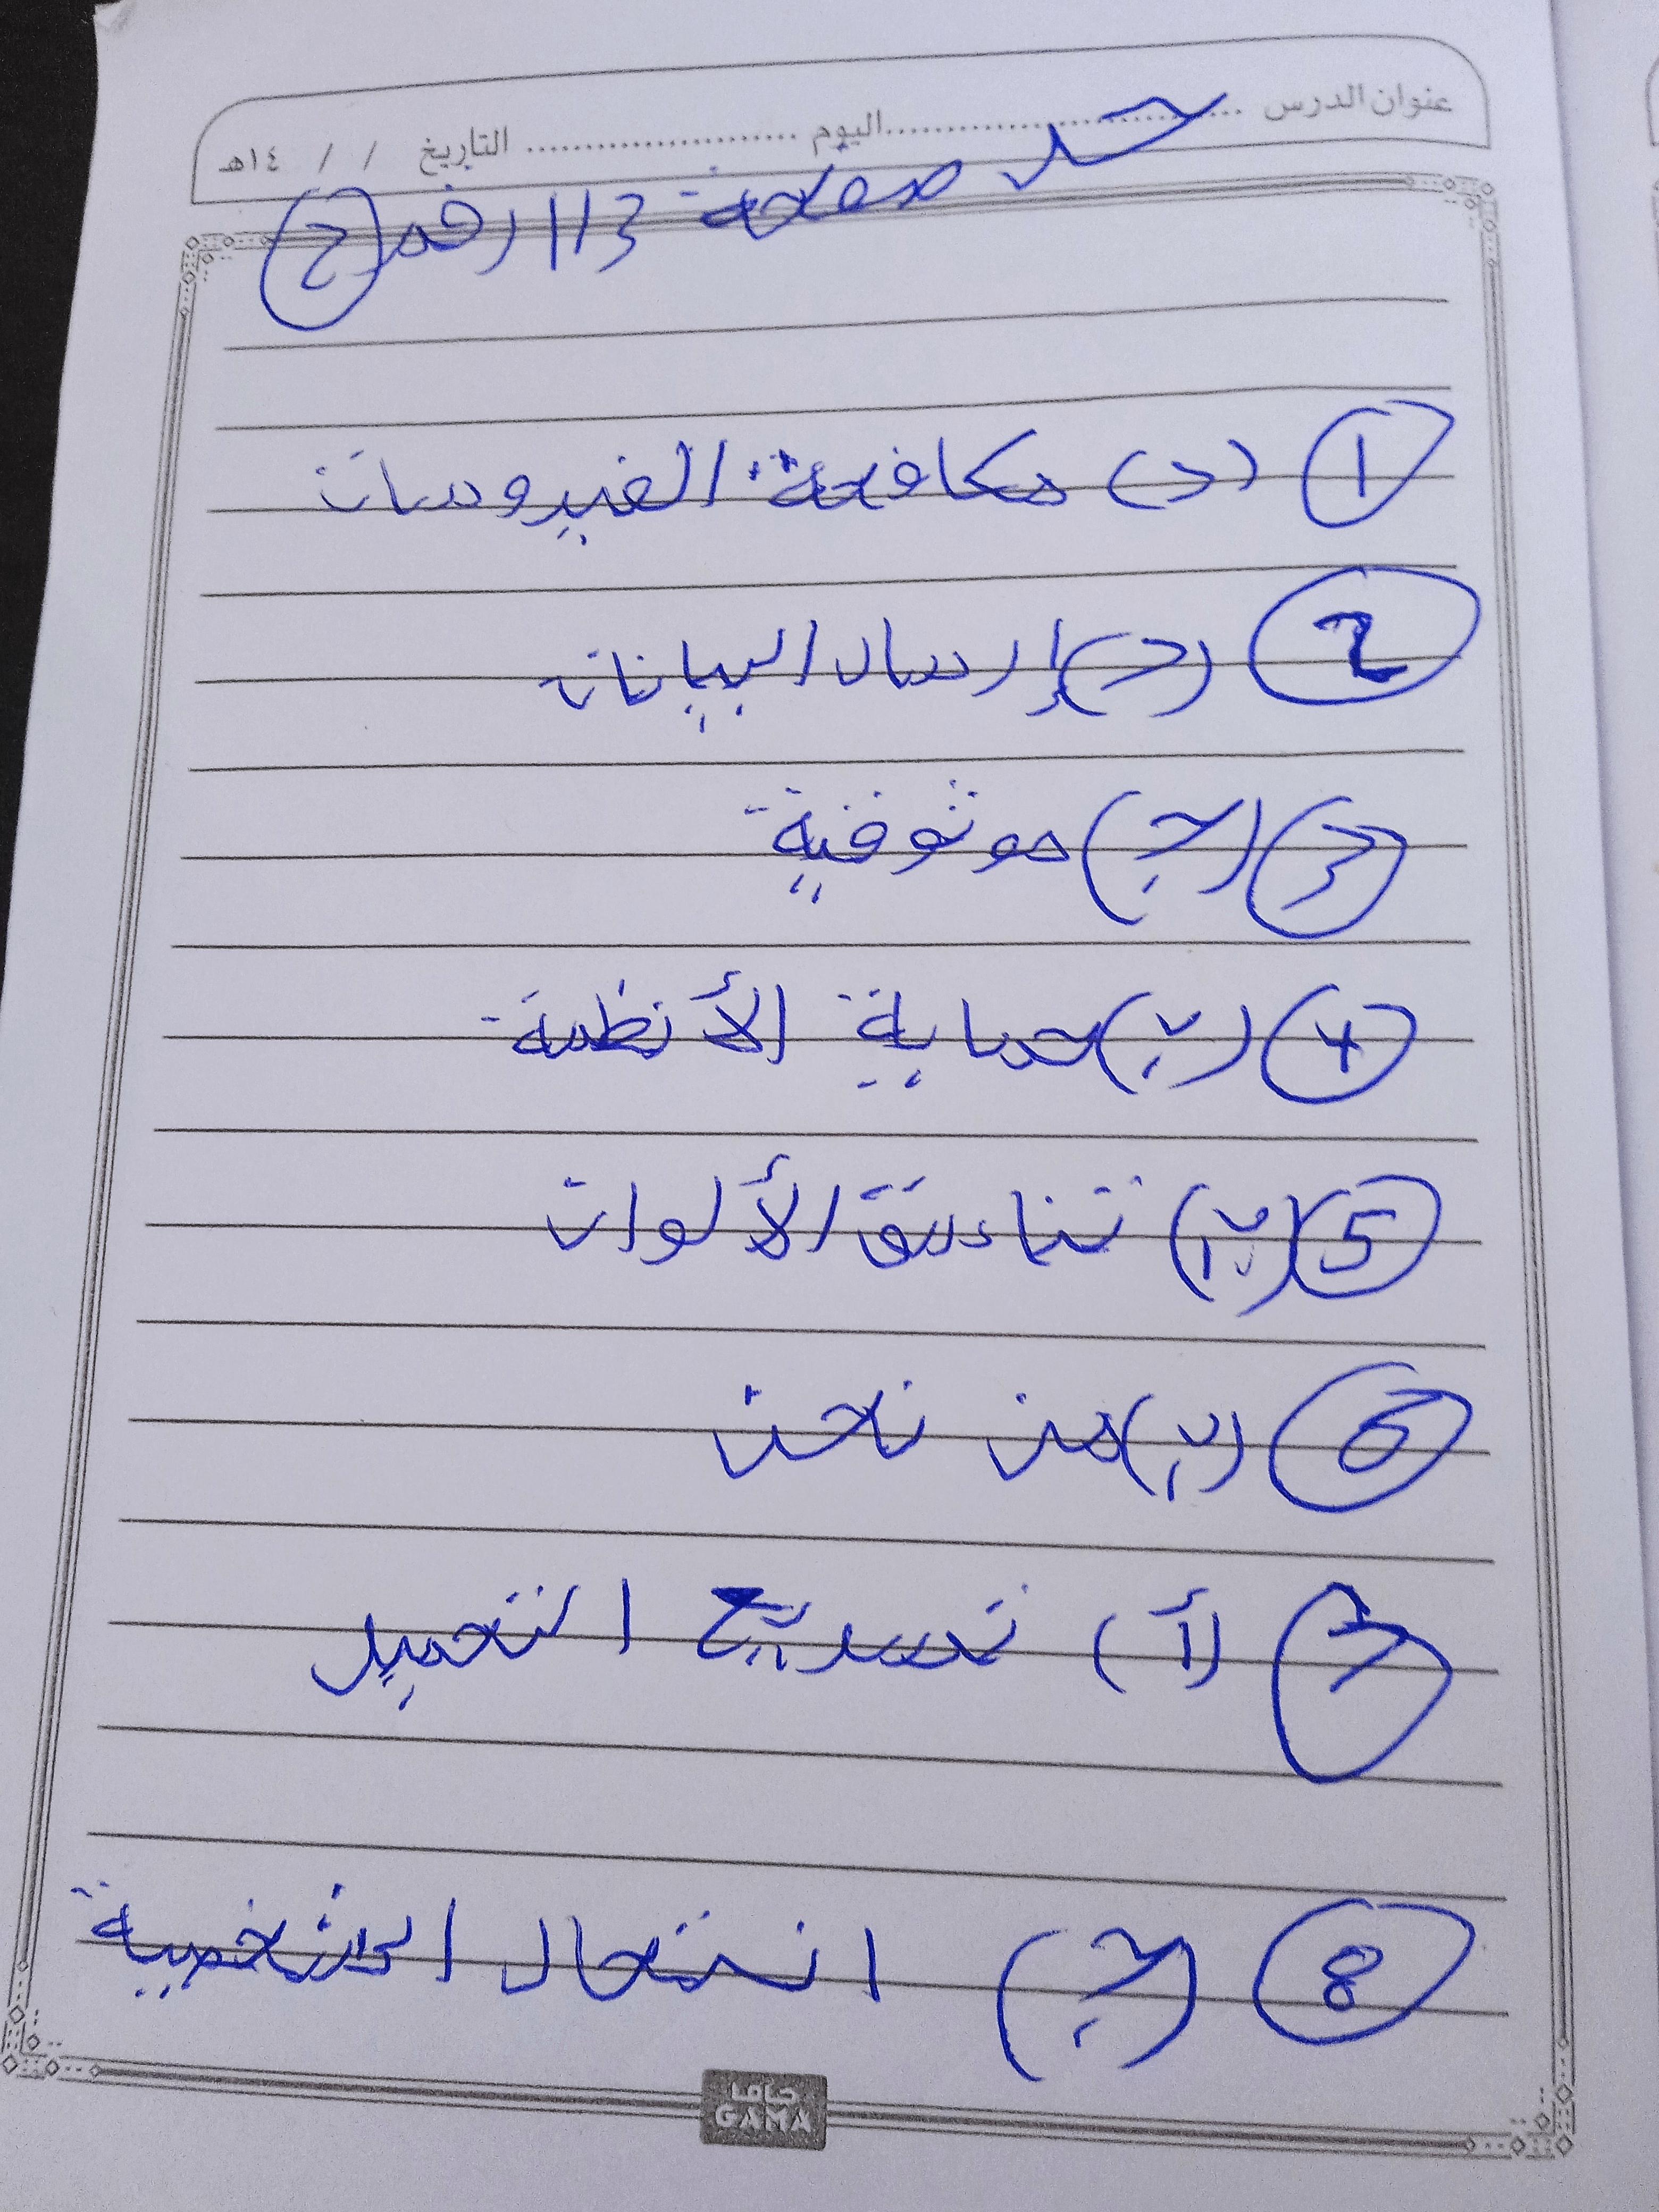 عنوان الدرس ........................ اليوم ........................ التاريخ / / ١٤هـ
حل صفحة 113 رقم (2)
1 (د) مكافحة الفيروسات
2 (د) إرسال البيانات
3 (ج) موثوقية
4 (ب) حماية الأنظمة
5 (ب) تناسق الألوان
6 (ب) من نحن
7 (أ) تسريع التحميل
8 (ج) انتحال الشخصية
جاما
GAMA